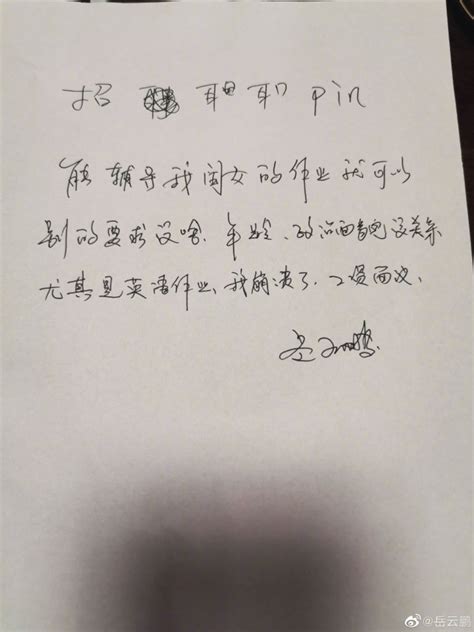 招 耶 职 pin
能辅导我闺女的作业就可以
别的要求没啥.年龄、的沿面貌没关系
尤其是英语作业,我崩溃了.工资面议.
岳云鹏
@岳云鹏